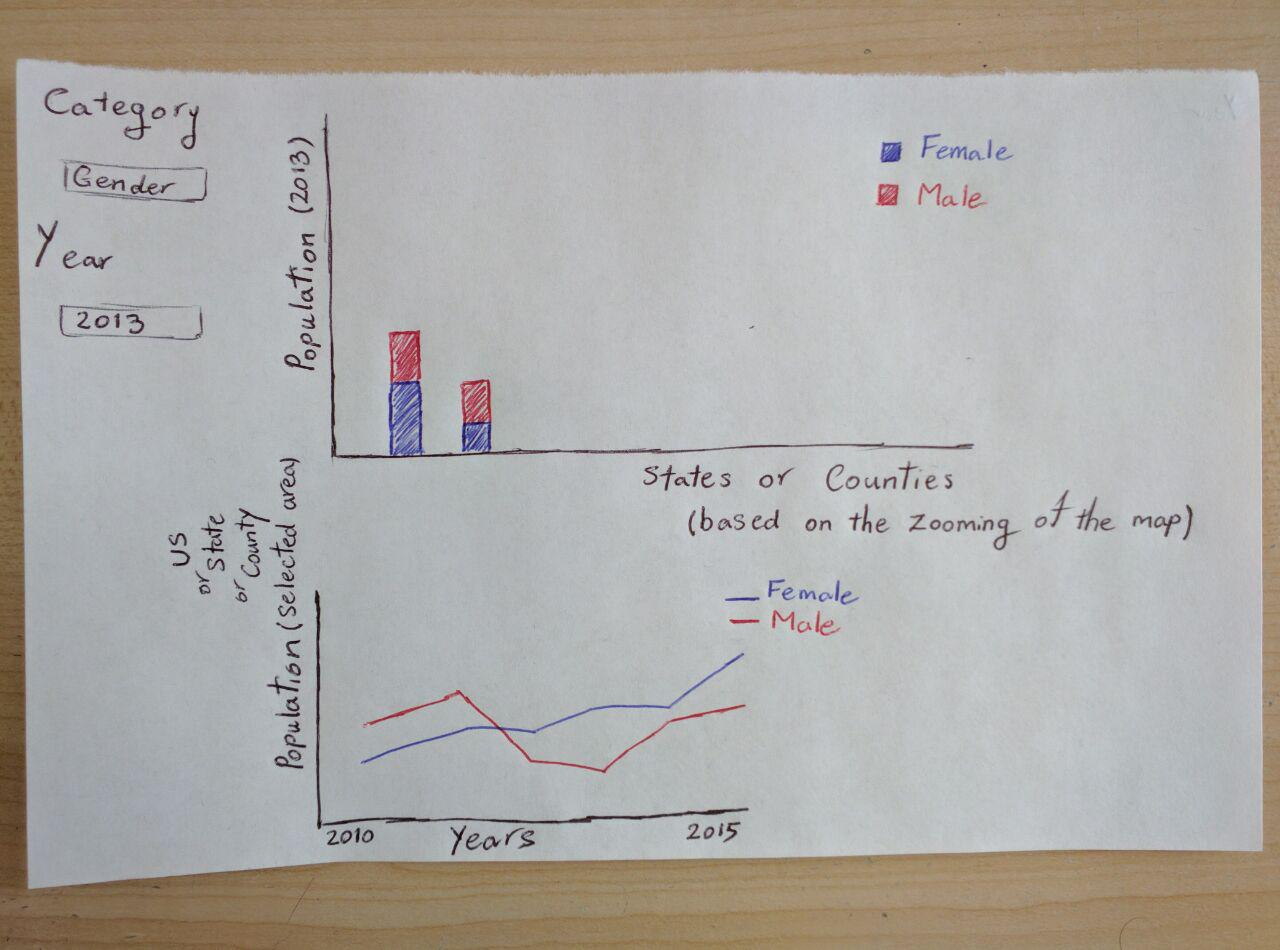 Category
Gender
Year
2013
Population (2013)
Female
Male
States or Counties
(based on the zooming of the map)
US
or State
or County
Population (selected area)
Female
Male
2010
Years
2015